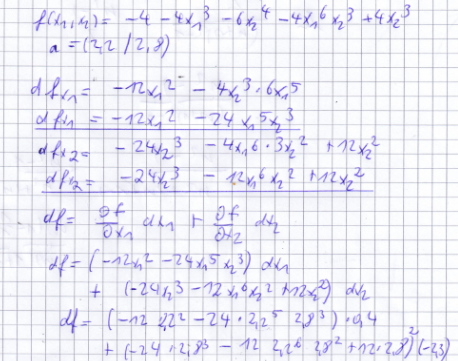 f(x₁,x₂) = -4 - 4x₁³ - 6x₂⁴ - 4x₁⁶x₂³ + 4x₂³
a = (2,2 / 2,8)
dfx₁ = -12x₁² - 4x₂³ · 6x₁⁵
dfx₁ = -12x₁² - 24x₁⁵x₂³
dfx₂ = -24x₂³ - 4x₁⁶ · 3x₂² + 12x₂²
dfx₂ = -24x₂³ - 12x₁⁶x₂² + 12x₂²
df = ∂f/∂x₁ dx₁ + ∂f/∂x₂ dx₂
df = (-12x₁² - 24x₁⁵x₂³) dx₁
+ (-24x₂³ - 12x₁⁶x₂² + 12x₂²) dx₂
df = (-12 · 2,2² - 24 · 2,2⁵ 2,8³) · 0,4
+ (-24 · 2,8³ - 12 2,2⁶ 2,8² + 12 · 2,8)² (-2,3)